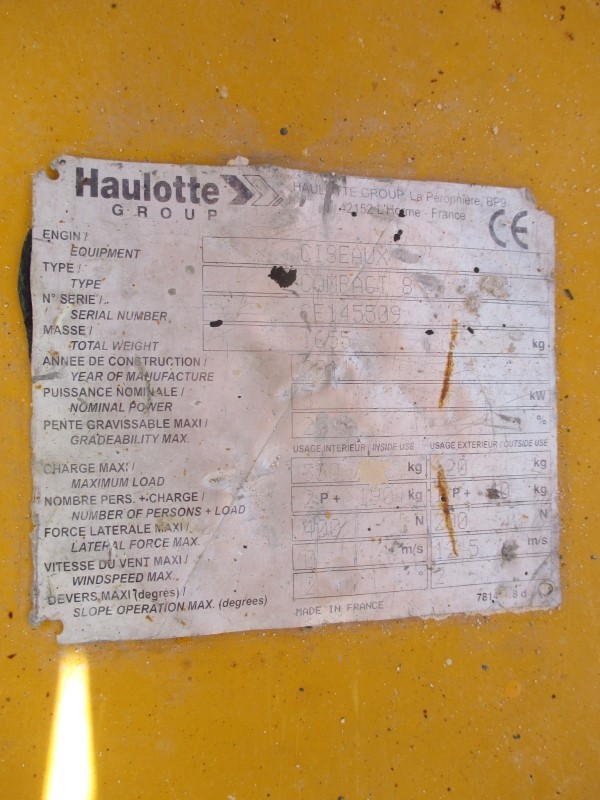 Haulotte
GROUP
HAULOTTE GROUP, La Péronnière, BP9
42152 L'Horme - France
CE
ENGIN /
EQUIPMENT
CISEAUX
TYPE /
TYPE
COMPACT 8
N° SERIE /
SERIAL NUMBER
CE145509
MASSE /
TOTAL WEIGHT
kg
ANNEE DE CONSTRUCTION /
YEAR OF MANUFACTURE
PUISSANCE NOMINALE /
NOMINAL POWER
kW
PENTE GRAVISSABLE MAXI /
GRADEABILITY MAX.
%
USAGE INTERIEUR / INSIDE USE USAGE EXTERIEUR / OUTSIDE USE
CHARGE MAXI /
MAXIMUM LOAD
kg kg
NOMBRE PERS. + CHARGE /
NUMBER OF PERSONS + LOAD
P + kg P + kg
FORCE LATERALE MAXI /
LATERAL FORCE MAX.
400 N 200 N
VITESSE DU VENT MAXI /
WINDSPEED MAX.
0 m/s m/s
DEVERS MAXI (degrés) /
SLOPE OPERATION MAX. (degrees)
2 ° 2
MADE IN FRANCE